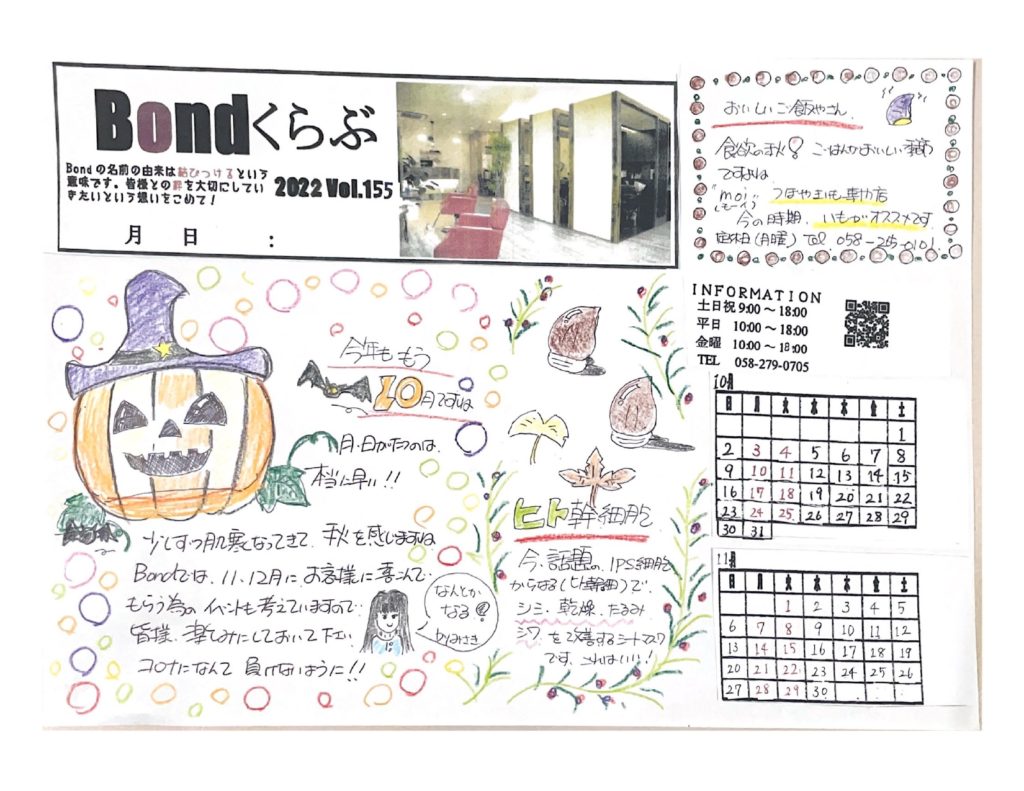 Bondくらぶ
Bondの名前の由来は結びつけるという
意味です。皆様との絆を大切にしてい
きたいという想いをこめて！
2022 Vol.155
月 日 :
おいしいご飯やさん
食欲の秋！ごはんがおいしい季節
ですね
"moi"
つぼやきいも専門店
今の時期、いもがオススメです
定休日(月曜) Tel 058-215-0101
INFORMATION
土日祝 9:00～18:00
平日 10:00～18:00
金曜 10:00～18:00
TEL 058-279-0705
今年ももう
10月ですね
月・日がたつのは、
本当に早い!!
少しずつ肌寒くなってきて、秋を感じますね
Bondでは、11、12月に、お客様に喜んで
もらう為のイベントも考えていますので
皆様、楽しみにしておいて下さい
コロナになんて負けないように!!
なんとか
なる
byみさき
ヒト幹細胞
今、話題の、IPS細胞
からなる(ヒト幹細胞)で、
シミ、乾燥、たるみ
シワ、を改善するシートマスク
です、これはいい！
10月
日 月 火 水 木 金 土
1
2 3 4 5 6 7 8
9 10 11 12 13 14 15
16 17 18 19 20 21 22
23 24 25 26 27 28 29
30 31
11月
日 月 火 水 木 金 土
1 2 3 4 5
6 7 8 9 10 11 12
13 14 15 16 17 18 19
20 21 22 23 24 25 26
27 28 29 30